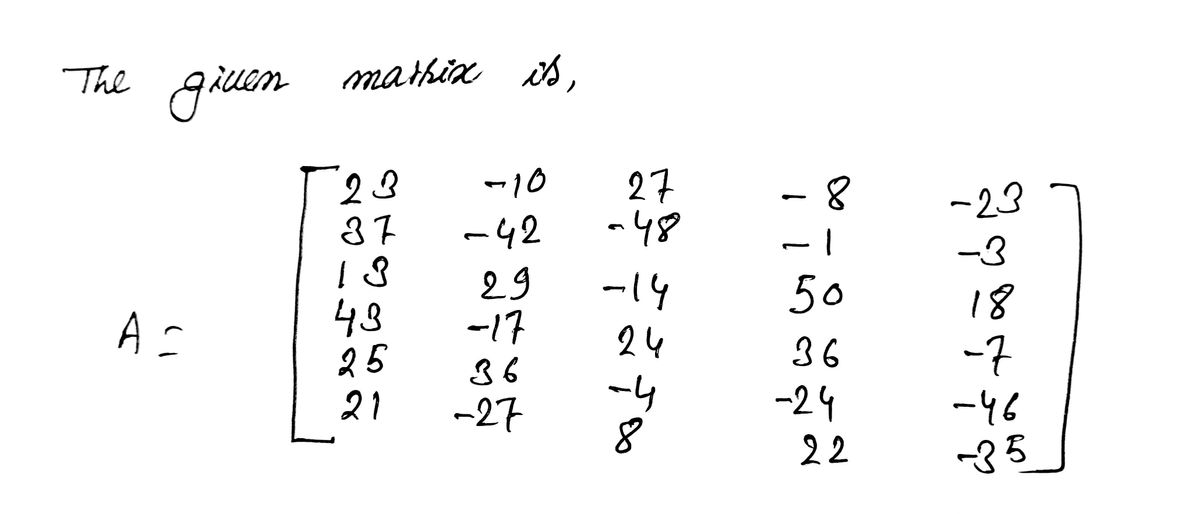 The given matrix is,
A =
23 -10 27 -8 -23
37 -42 -48 -1 -3
13 29 -14 50 18
43 -17 24 36 -7
25 36 -4 -24 -46
21 -27 8 22 -35